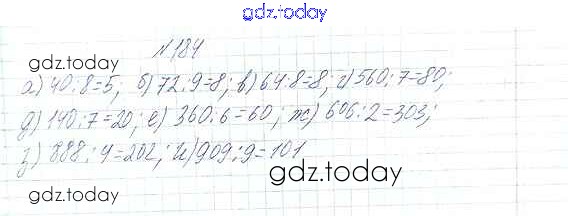 gdz.today
№184
gdz.today
а) 40:8=5; б) 72:9=8; в) 64:8=8; г) 560:7=80;
д) 140:7=20; е) 360:6=60; ж) 606:2=303;
з) 888:4=202; и) 909:9=101
gdz.today
gdz.today